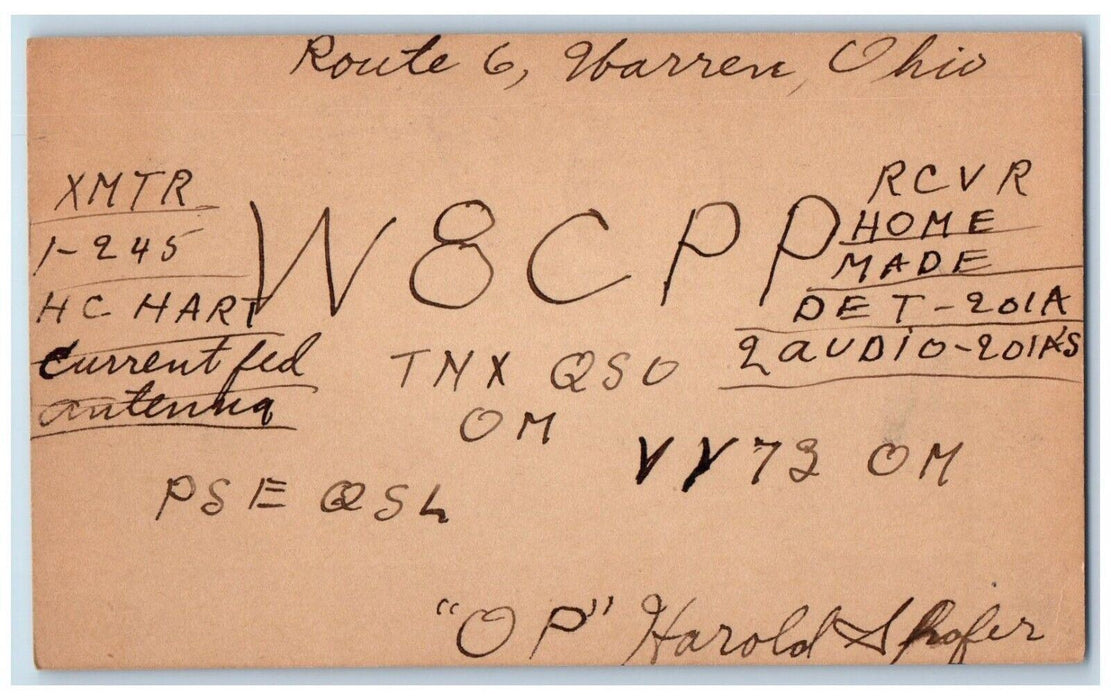 Route 6, Warren, Ohio
XMTR
1-245
HC HART
Current fed
antenna
W8CPP
RCVR
HOME
MADE
DET-201A
2 AUDIO-201A'S
TNX QSO
OM
VY 73 OM
PSE QSL
"OP" Harold Shofer